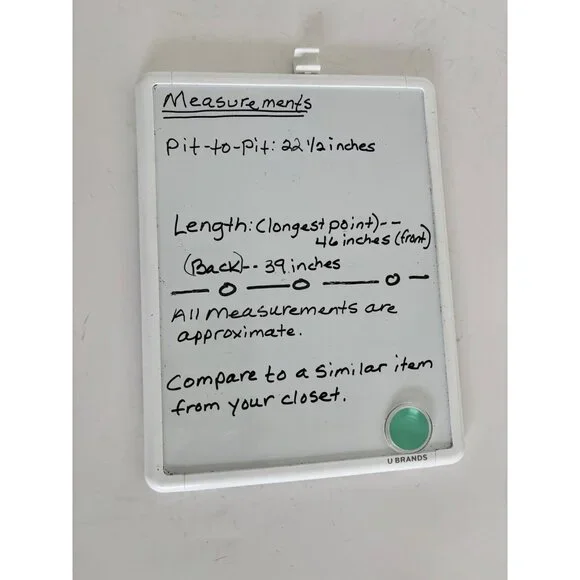 Measurements
Pit-to-Pit: 22 1/2 inches
Length: (longest point)--
46 inches (front)
(Back)-- 39 inches
All Measurements are
approximate.
Compare to a similar item
from your closet.
U BRANDS